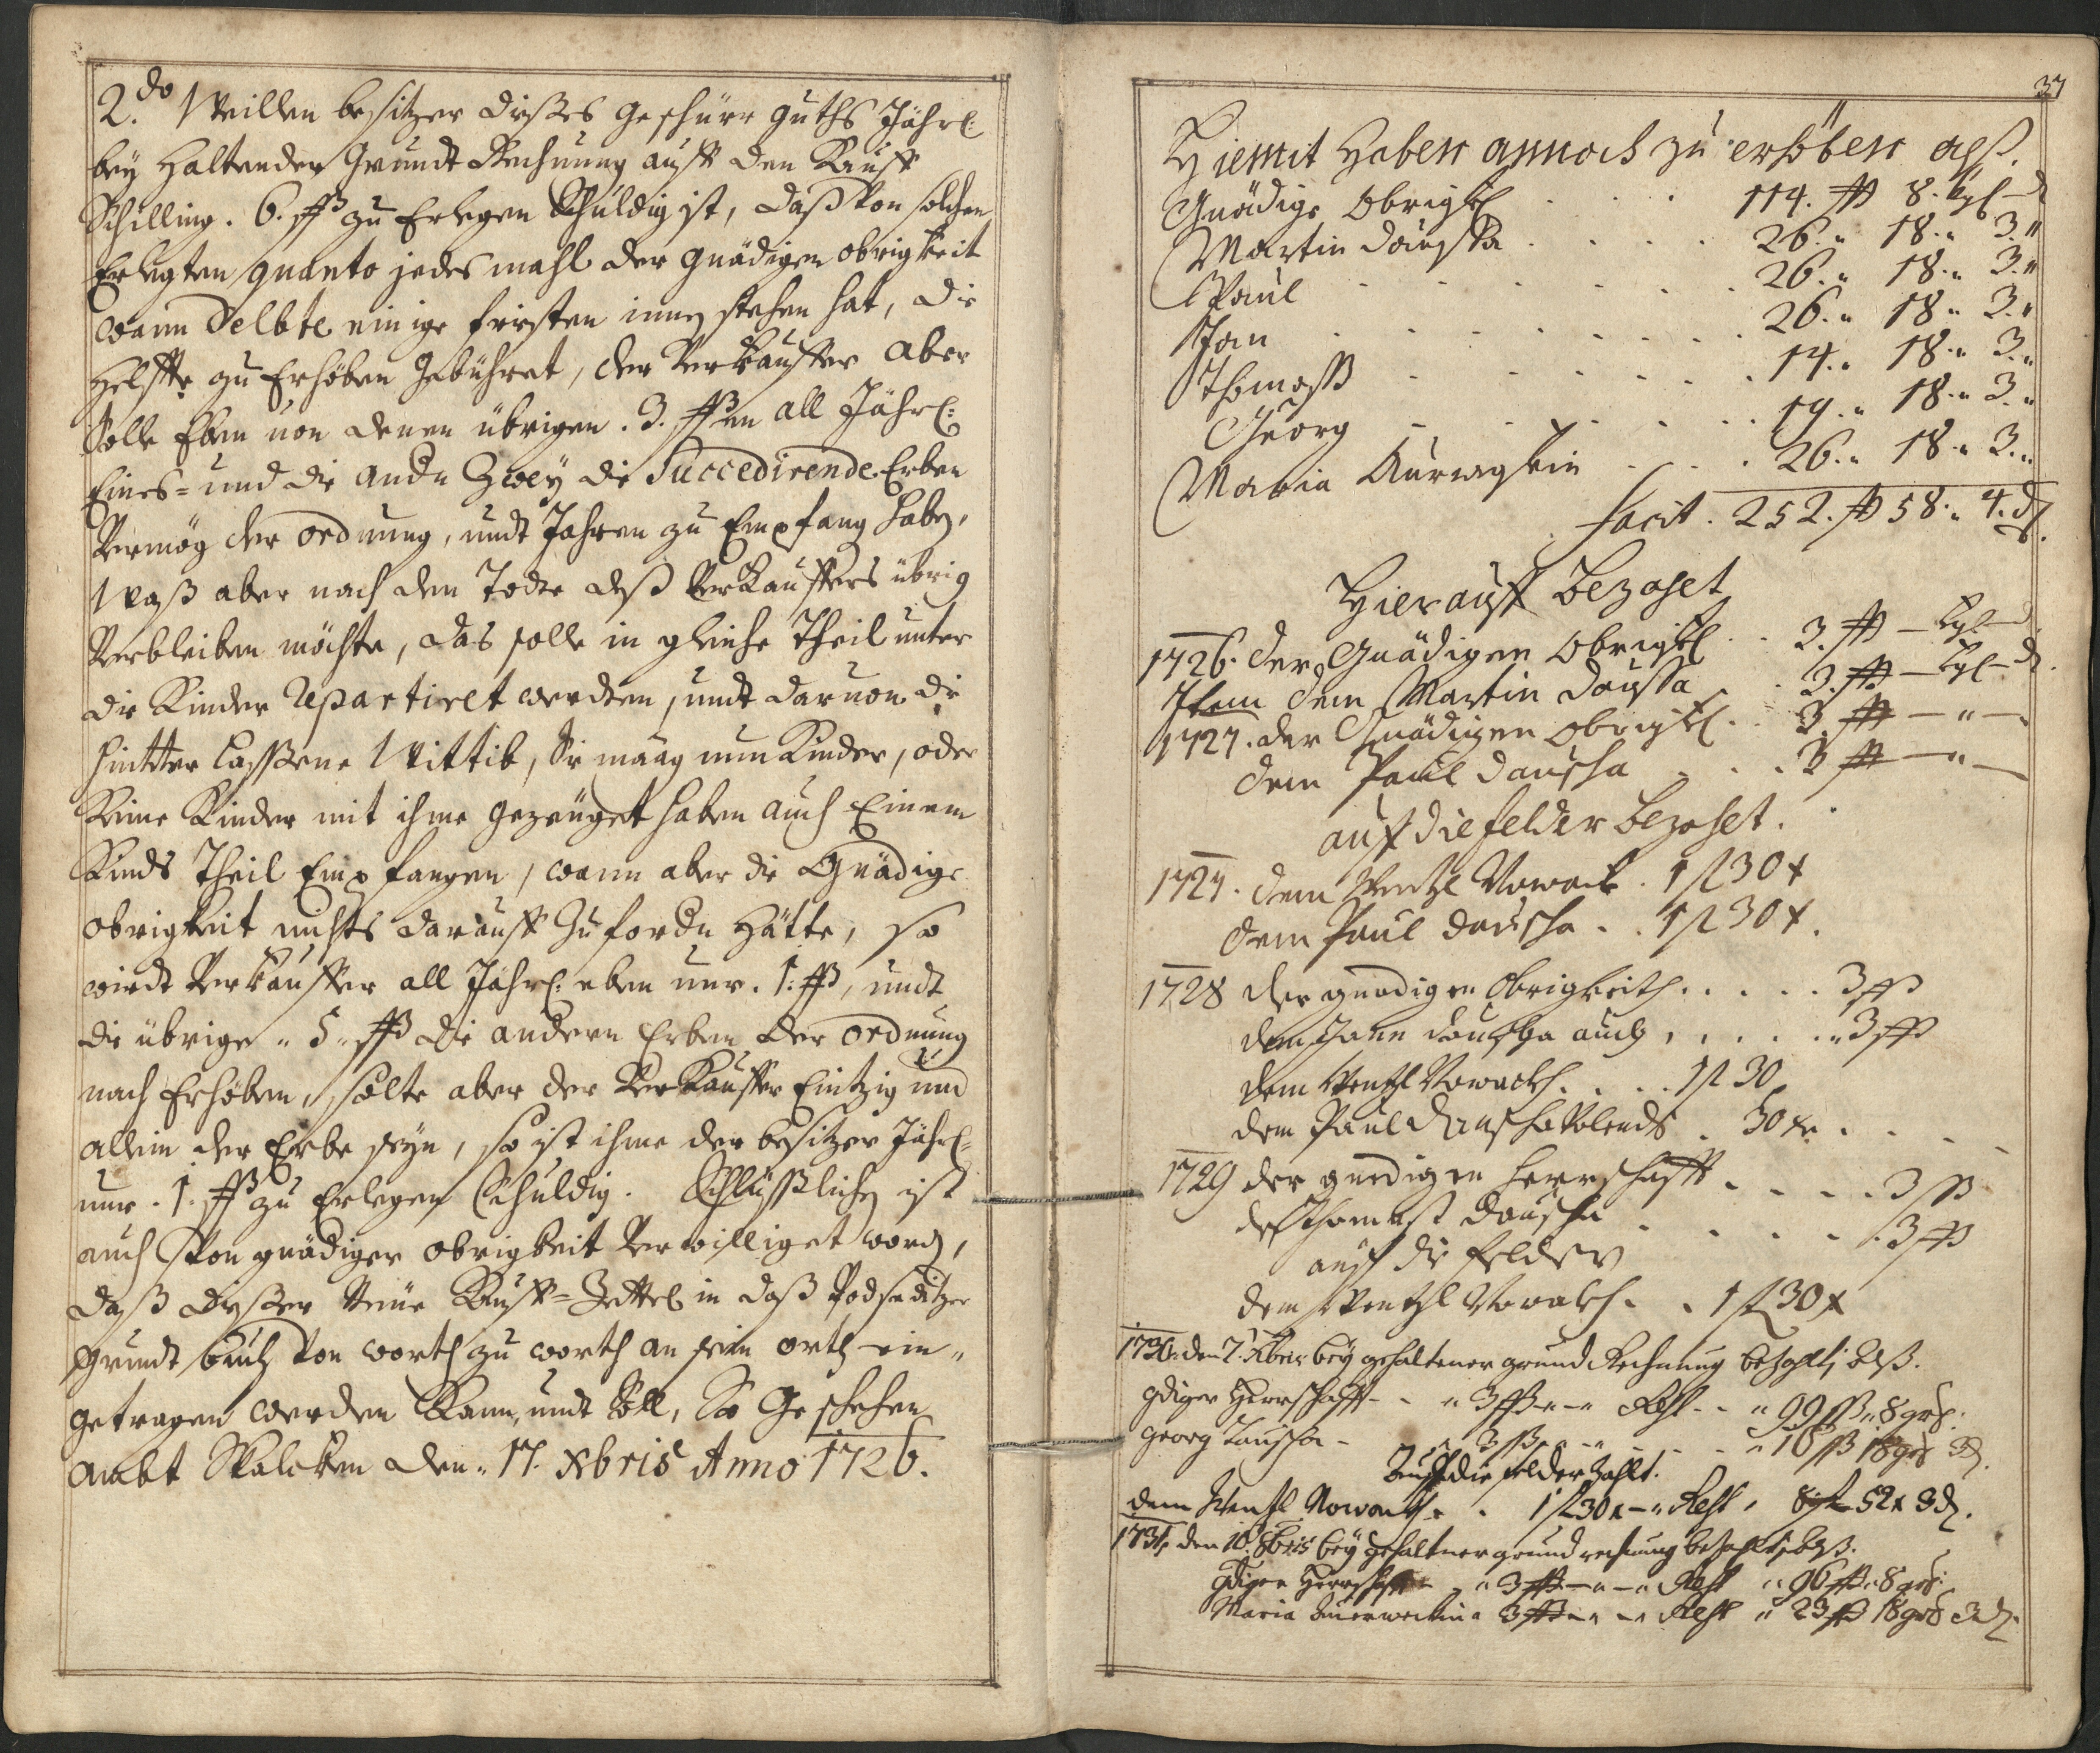 2.do Weillen besitzer dießes geschürr guths Jährl:
bey Haltender Grundt Rechnung auff den Kauff
Schilling. 6. ß zu Erlegen Schuldig ist, daß Von solchen
Erlegten quanto jedes mahl der gnädigen obrigkeit
wann Selbte einige fristen innen stehen hat, die
Helffte zu Erhöben gebühret, der Verkauffer aber
Solle Eben von denen übrigen. 3. ß en all Jährl:
Eines= und die andn Zwey die Succedirende Erben
Vermög der ordnung, undt Jahren zu Empfang haben,
Waß aber nach den Todte deß Verkauffers übrig
Verbleiben möchte, das solle in gleiche Theil unter
die Kinder repartiret werdten, undt darvon die
hintter Lasßene Wittib, Sie maag nun Kinder, oder
Keine Kinder mit ihme gezeüget haben auch Einem
Kinds Theil Empfangen, wann aber die Gnädige
obrigkeit nichts darauff zu fordn Hätte, so
wirdt Verkauffer all Jährl: eben nur. 1. ß, undt
die übrige 5 ß die andern Erben der ordnung
nach Erhöben, solte aber der Verkauffer Eintzig und
allein der Erbe seyn, so ist ihme der besitzer Jährl:
nur. 1. ß zu Erlegen Schuldig. Schlüßlichen ist
auch Von gnädiger obrigkeit Verwilliget worden,
daß dießer Neüe Kauff=Zettel in daß Podseditzer
grundt buch Von worth zu worth an sein orth ein„
getragen werden Kann, undt Soll, So Geschehen
ambt Skalcken den. 17. Xbris Anno 1726.
37
Hiemit Haben annoch zu erhöben alß.
Gnädige Obrigkl . . . 114. ß 8. kgl – d
Martin Dauscha . . . 26. „ 18. „ 3. „
Paul . . . 26. „ 18. „ 3. „
Jan . . . 26. „ 18. „ 3. „
Thomaß . . . 14. „ 18. „ 3. „
Georg . . . 19. „ 18. „ 3. „
Maria . . . 26. „ 18. „ 3. „
facit. 252. ß 58. „ 4. d.
Hierauff Bezahlet
1726. Der Gnädigen Obrigkl . . 3. ß – kgl – d
Item dem Martin Dauscha . . 3. ß – kgl – d.
1727. der Gnädigen Obrigkl . . 3. ß – „ –
dem Paul Dauscha . . . 3 ß – „ –
auf die felder bezahlet.
1727. dem Wentzl Nowack. 1 fl 30 x
dem Paul Dauscha . . 1 fl 30 x.
1728 der gnedigen Obrigkeith . . . . . 3 ß
dem Jann Dauscha auch . . . . „ 3 ß
dem Wentzl Nowackh . . . 1 fl 30
dem Paul Dauscha Volends . 30 x . . . .
1729 der gnedigen Herrschafft . . . . 3 ß
des Thomast Dauscha . . . . . 3 ß
auf die felder
dem Wentzl Nowakh . . 1 fl 30 x
1730. den 7. Xber bey gehaltener grund Rechnung bezahlt, alß.
gdiger Herrschafft – . „ 3 ß „ – „ Rest . . „ 99 ß „ 8 grl.
Georg Dauscha – „ 3 ß „ – „ . . „ 16 ß 18 gr 3 d.
Auf die felder Zahlt.
dem Wentzl Nowack . . 1 fl 30 x – „ Rest „ 52 x 3 d.
1731. den 10. 8bris bey gehaltner grund rechnung bezahlt, alß.
gdigen Herrschafft – „ 3 ß – „ – „ Rest „ 96 ß „ 8 gr.
Maria „ 3 ß – „ – „ Rest „ 23 ß 18 gr 3 d.